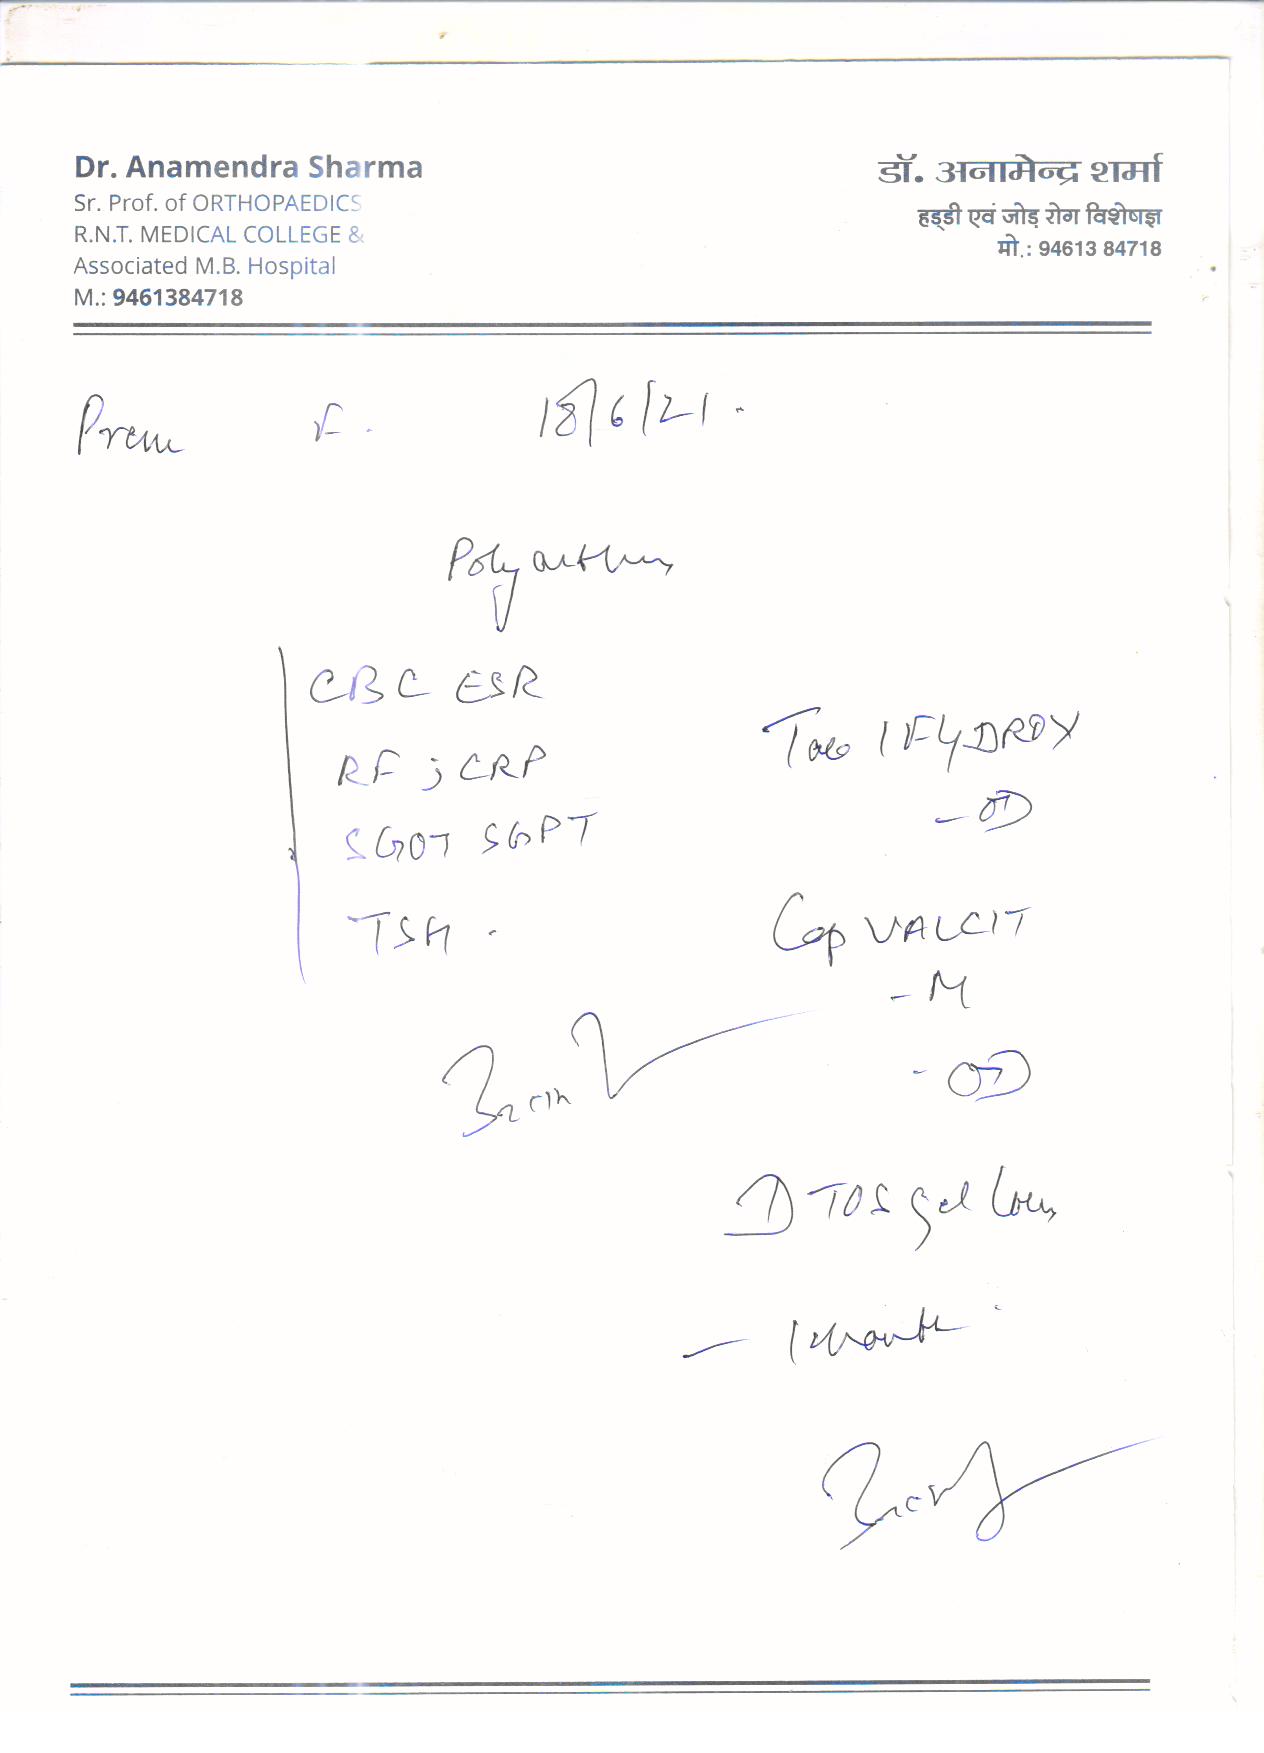 Dr. Anamendra Sharma
Sr. Prof. of ORTHOPAEDICS
R.N.T. MEDICAL COLLEGE &
Associated M.B. Hospital
M.: 9461384718
डॉ. अनामेन्द्र शर्मा
हड्डी एवं जोड़ रोग विशेषज्ञ
मो.: 94613 84718
Prem F. 18/6/21.
Polyarthritis
CBC ESR
RF ; CRP
SGOT SGPT
TSH .
Tab
- OD
Cap VALCIT
- M
- OD
DTOS gel
- 1 month